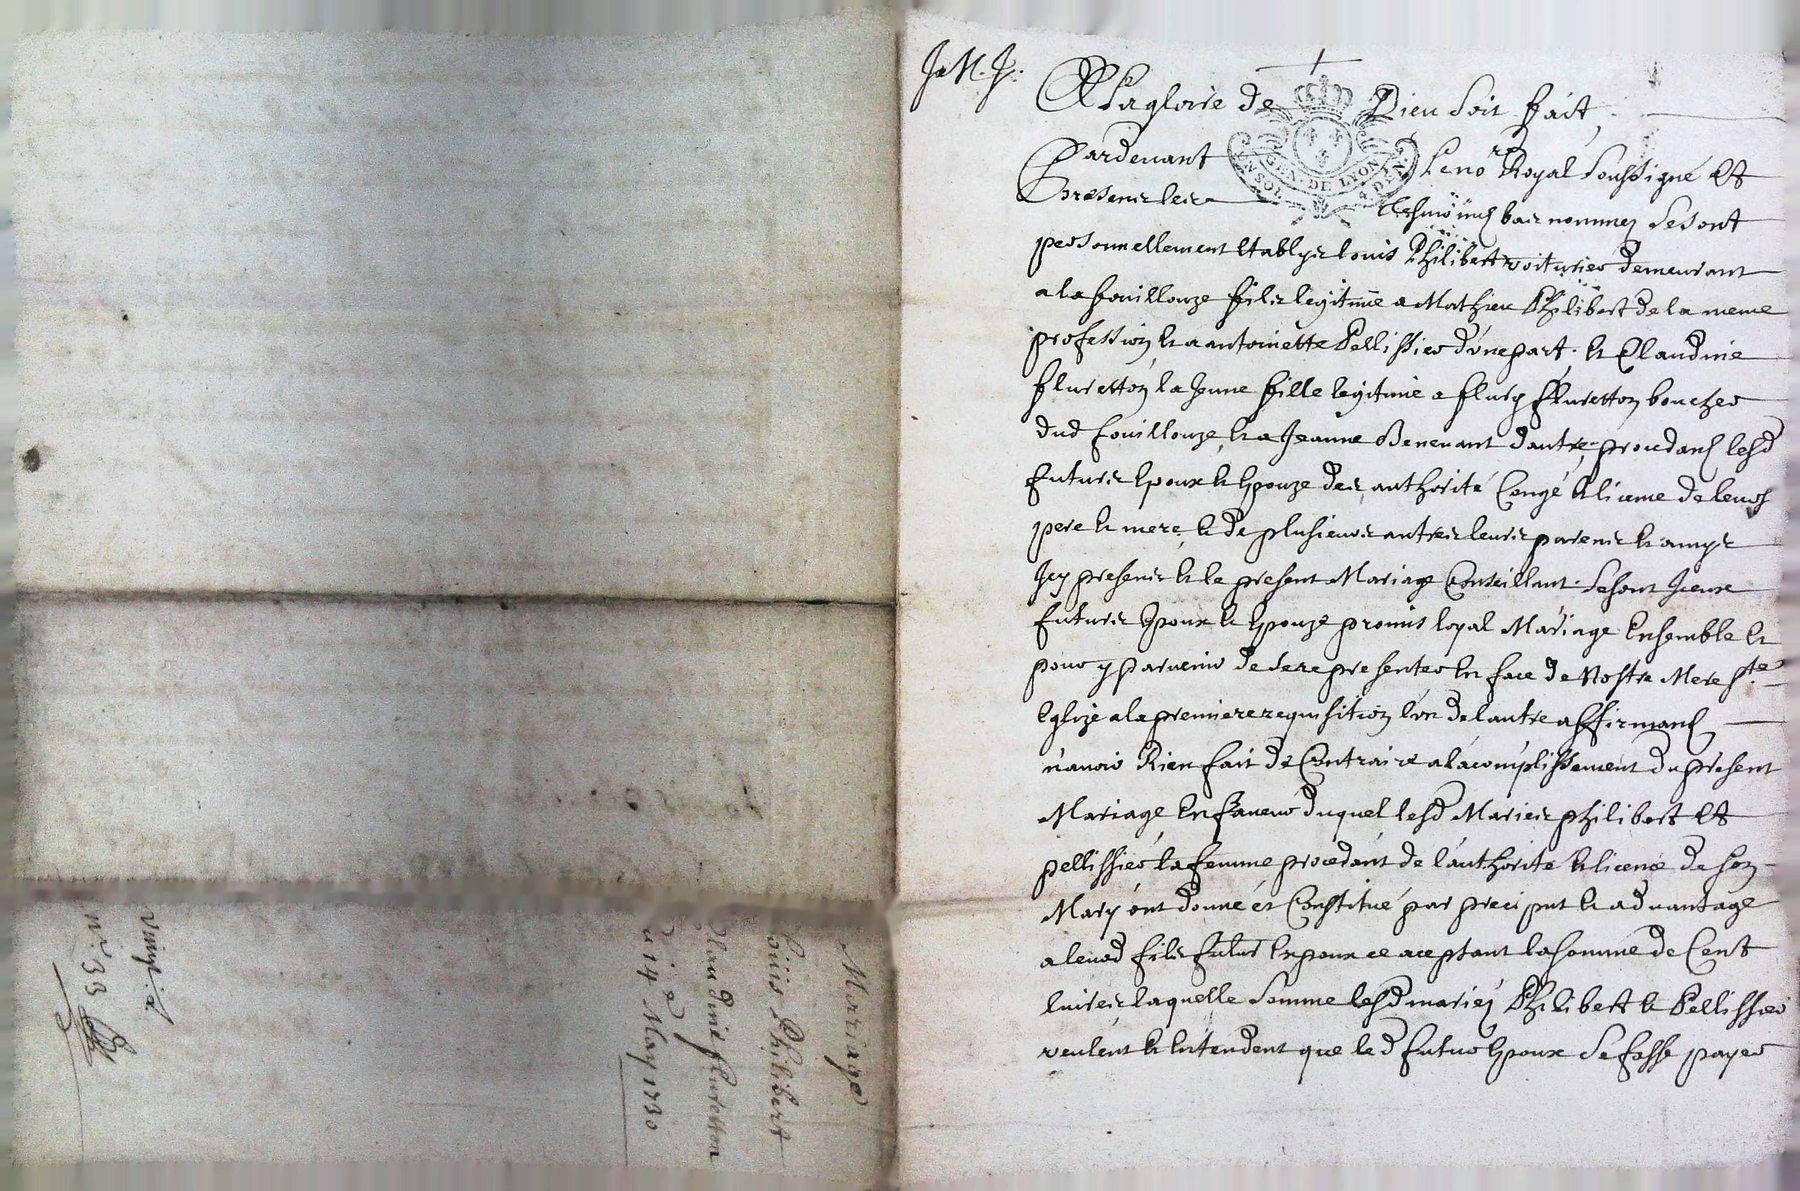 J. M. J.
A la gloire de Dieu soit fait,
Pardevant le no.re Royal soussigné et
presents les tesmoings bas nommez se sont
personnellement etablys louis Philibert voiturier demeurant
a la fouillouze fils legitime a Mathieu Philibert de la meme
profession et a antoinette Pellissier d'une part. et Claudine
fluretton la Jeune fille legitime a flury fluretton boucher
dud fouillouze, et a Jeanne Benevant d'autre, procedans lesd
futurs epoux et epouze des authorité Congé et licence de leurs
pere et mere, et de plusieurs autres leurs parens et amys
Icy presens et le present Mariage Conseillant. se sont Iceux
futurs Epoux et Epouze promis loyal Mariage Ensemble et
pour y parvenir de se representer en face de Nostre Mere s.te
Eglize a la premiere requisition l'un de l'autre affirmans
n'avoir Rien fait de Contraire a l'acomplissement du present
Mariage en faveur duquel lesd Mariés philibert et
pellissier la femme procedant de l'authorité et licence de son
Mary ont donné et Constitué par preciput et advantage
a leurd fils futur Espoux ce aceptant la somme de Cent
livres laquelle somme lesd mariez Philibert et Pellissier
veulent et Entendent que led futur Epoux se fasse payer
Marriage
Loüis Philibert
Claudine fluretton
du 14.e May 1730
n.o 33
GEN. DE LYON